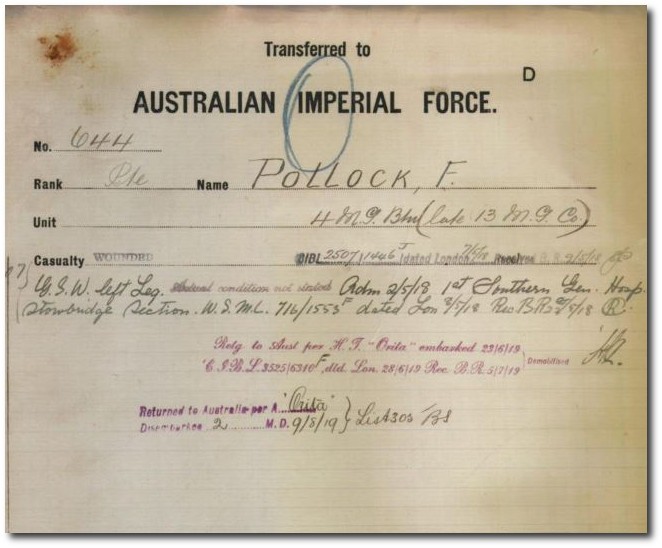 Transferred to
D
AUSTRALIAN IMPERIAL FORCE.
No. 644
Rank Pte Name POLLOCK, F.
Unit 4 M.G. Btn (late 13 M.G. Co)
Casualty WOUNDED CIBL 2507/1446 T dated London 7/5/18 Received 9/5/18
G.S.W. left Leg. Actual condition not stated Adm 2/5/18 1st Southern Gen. Hosp
Stowbridge Section. W.S.M.L. 716/1553 F dated Lon
Retg to Aust per H.T. "Orita" embarked 23/6/19
C.I.B.L. 3525/6310 F, dtd. Lon. 28/6/19 Rec. B.R. 5/7/19 Demobilised
Returned to Australia per A "Orita"
Disembarked 2 M.D. 9/8/19 } List 303 BS